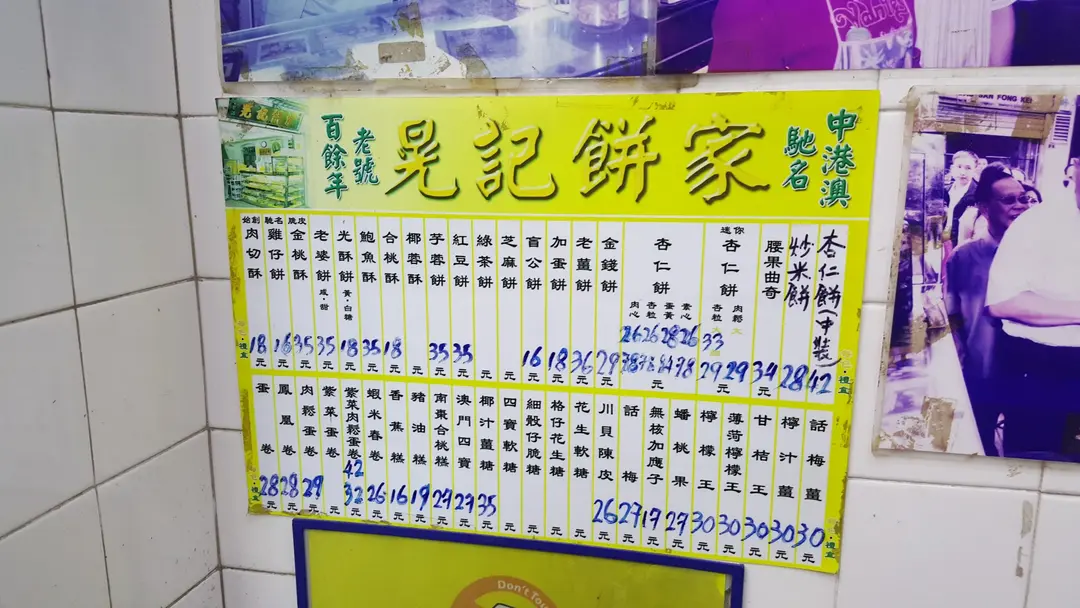 百餘年
老號
晃記餅家
馳名
中港澳
始創 肉切酥 18元
馳名 雞仔餅 16元
脆皮 金桃酥 35元
老婆餅 咸·甜 35元
光酥餅 黃·白糖 18元
鮑魚酥 35元
合桃酥 18元
椰蓉酥 元
芋蓉餅 35元
紅豆餅 35元
綠茶餅 元
芝麻餅 元
盲公餅 16元
加蛋餅 18元
老薑餅 36元
金錢餅 29元
杏仁餅
肉心 杏粒 蛋黃 素心
26 26 28 26
78 84 78 元
迷你 杏仁餅
杏粒 肉鬆
33
29元 29元
腰果曲奇 34元
炒米餅 28元
杏仁餅(中裝) 42
禮盒
蛋卷 28元
鳳凰卷 28元
肉鬆蛋卷 29元
紫菜蛋卷 元
紫菜肉鬆蛋卷 42 32元
蝦米春卷 26元
香蕉糕 16元
豬油糕 19元
南棗合桃糕 27元
澳門四寶 27元
椰汁薑糖 35元
四寶軟糖 元
細殼仔脆糖 元
格仔花生糖 元
花生軟糖 元
川貝陳皮 26元
話梅 27元
無核加應子 17元
蟠桃果 27元
檸檬王 30元
薄荷檸檬王 30元
甘桔王 30元
檸汁薑 30元
話梅薑 30元
禮盒
Don't Tou